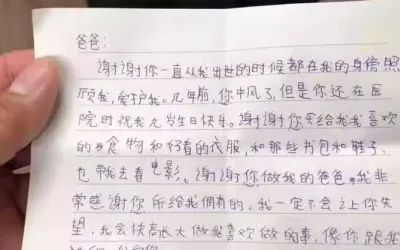 爸爸:
谢谢你一直从我出世的时候都在我的身傍照
顾我,爱护我。几年前,你中风了,但是你还在医
院时祝我九岁生日快乐。谢谢你买给我我喜欢
的食物和好看的衣服,和那些书包和鞋子,
也带我去看电影。谢谢你做我的爸爸,我非
常感谢你所给我拥有的。我一定不会让你失
望,我会快高长大做我喜欢做的事,像你跟我